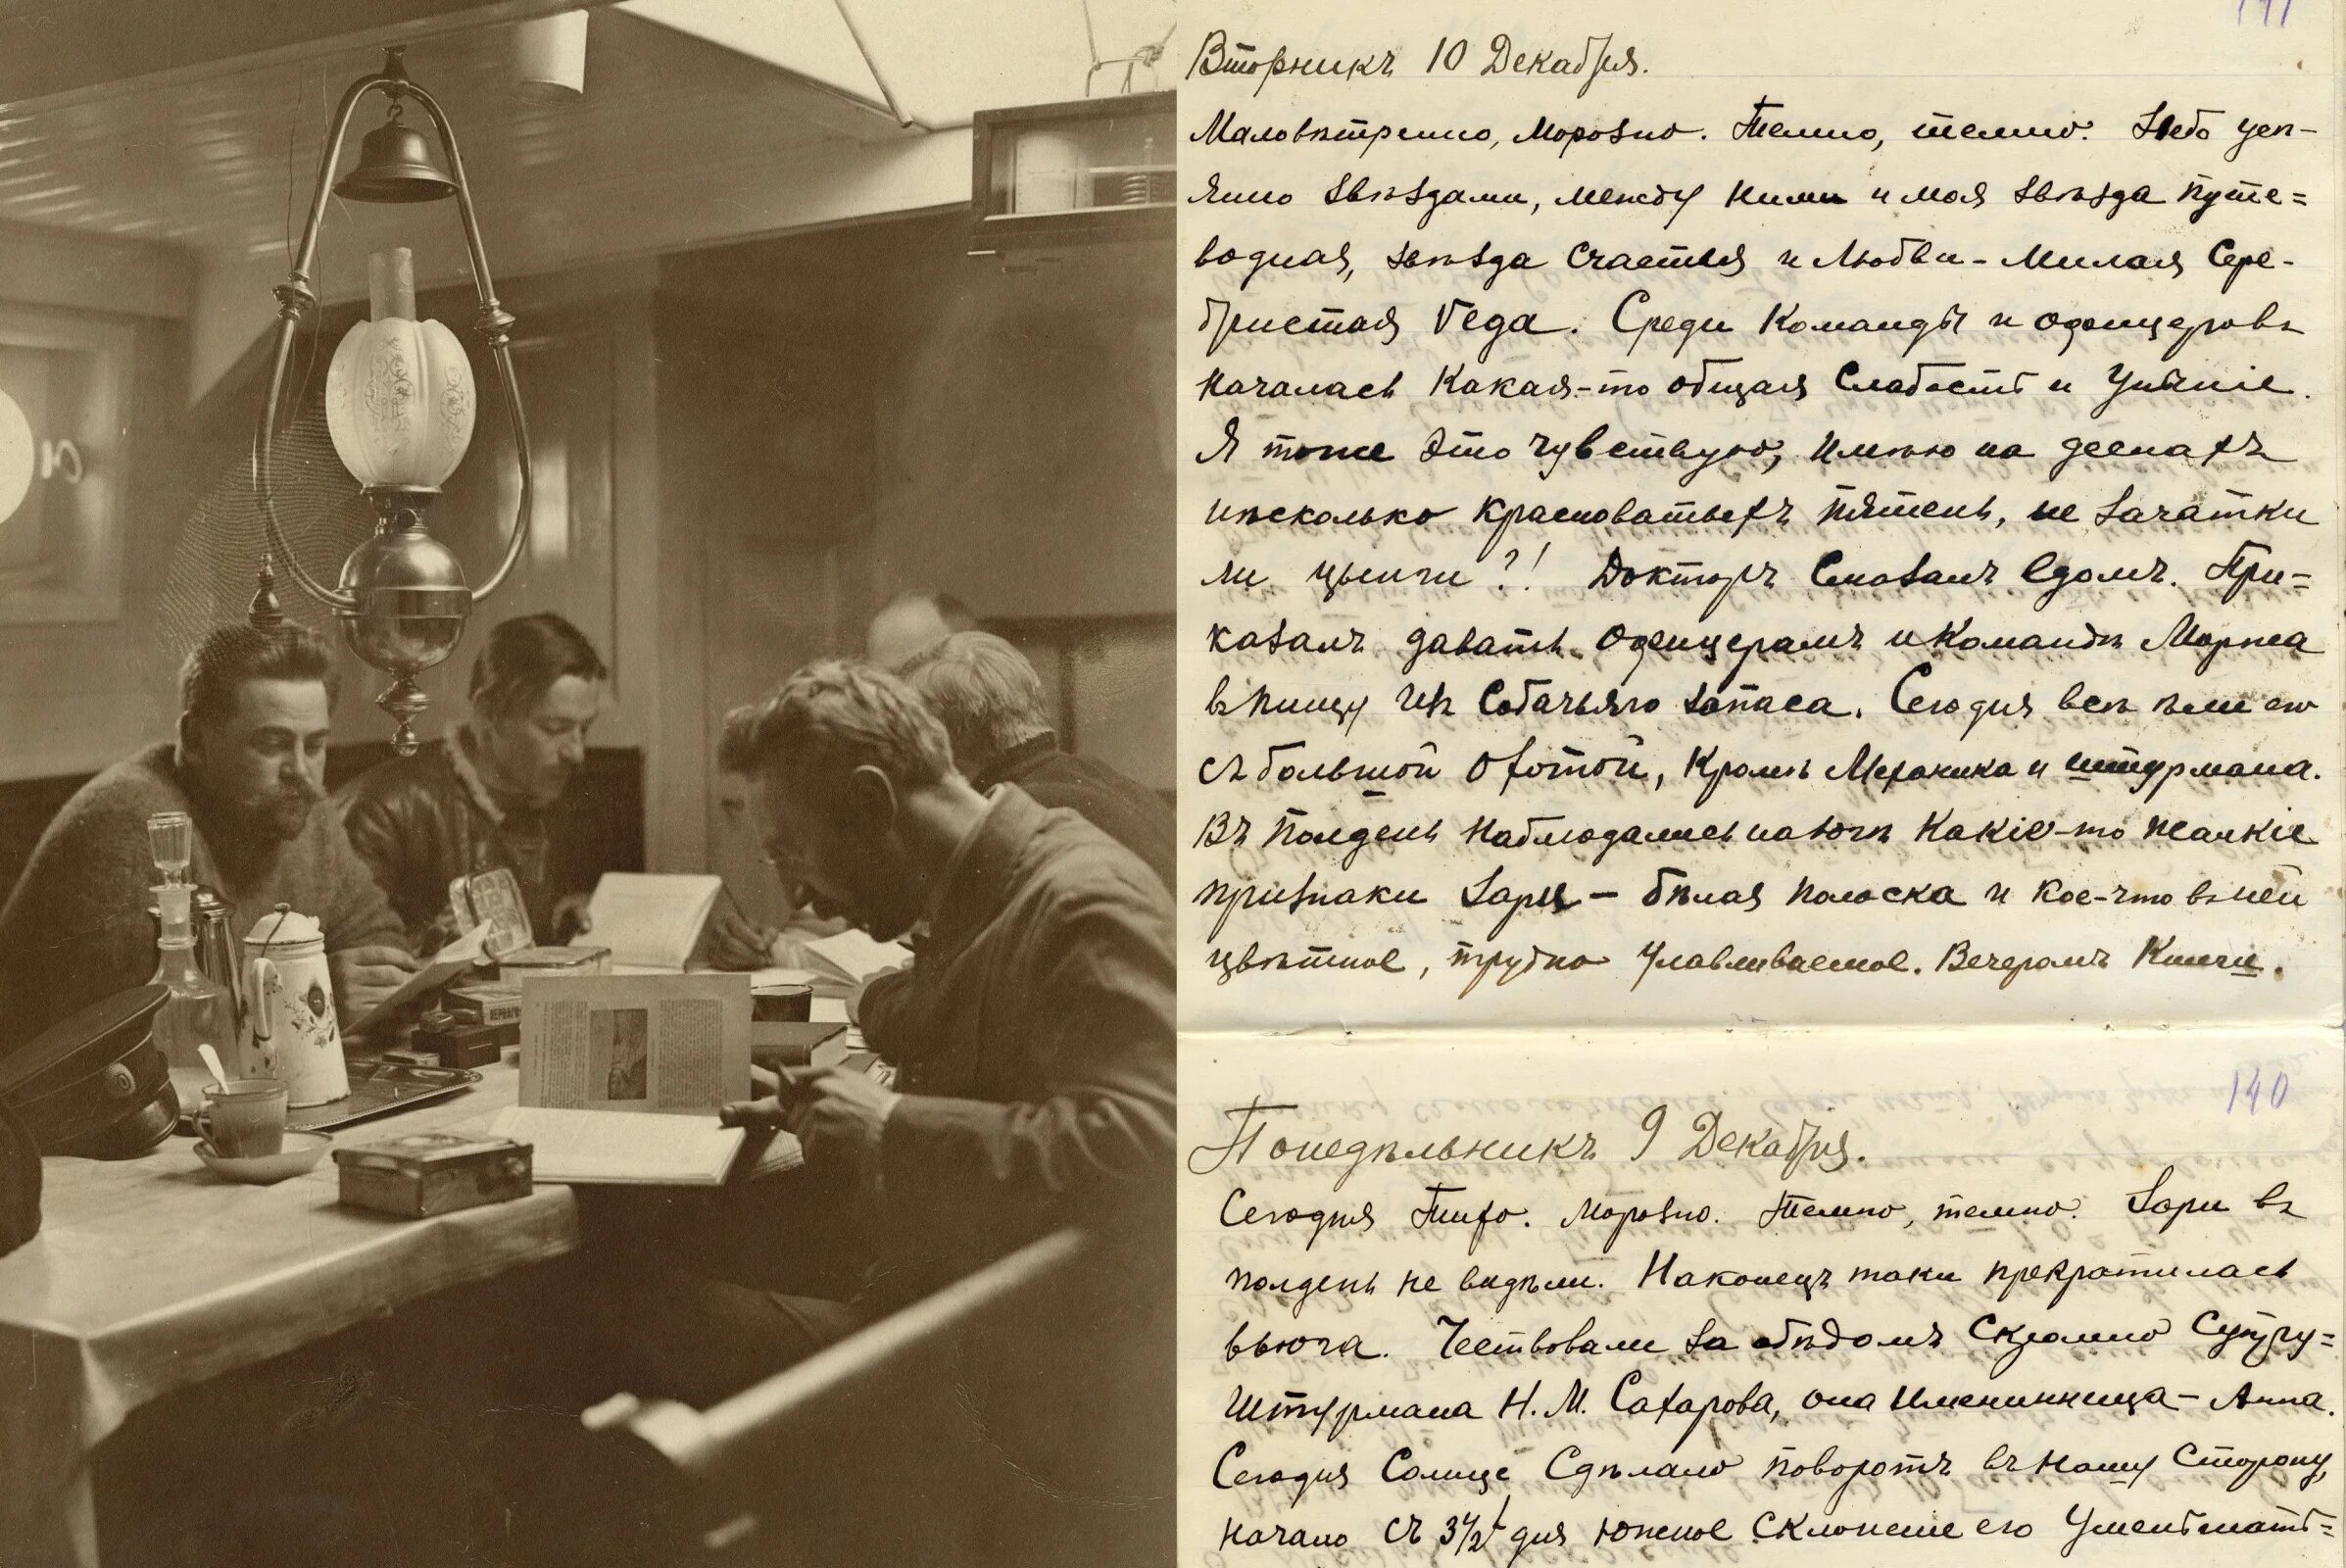 141
Вторникъ 10 Декабря.
Маловѣтренно, морозно. Темно, темно. Небо усѣ-
яно звѣздами, между ними и моя звѣзда путе=
водная, звѣзда Счастья и Любви - Милая Сере-
бристая Vега. Среди Команды и офицеровъ
началась Какая-то общая Слабость и Уныніе.
Я тоже Это чувствую, Имѣю на деснахъ
нѣсколько красноватыхъ пятенъ, не Зачатки
ли цынги?! Докторъ Смазалъ Iодомъ. При=
казалъ давать Офицерамъ и Командѣ Моржа
въ пищу изъ Собачьяго запаса. Сегодня всѣ ѣли его
съ большой Охотой, Кромѣ Механика и штурмана.
Въ Полдень Наблюдались на Югѣ Какіе-то жалкіе
признаки Зари - бѣлая полоска и кое-что въ ней
цвѣтное, трудно Улавливаемое. Вечеромъ Книги.
140
Понедѣльникъ 9 Декабря.
Сегодня Тихо. Морозно. Темно, темно. Зари въ
полдень не видѣли. Наконецъ таки прекратилась
вьюга. Чествовали за обѣдомъ Скромно Супругу=
Штурмана Н. М. Сахарова, она Именинница - Анна.
Сегодня Солнце Сдѣлало поворотъ въ нашу Сторону,
начало съ 3 1/2 дня Южное Склоненіе его Уменьшать=